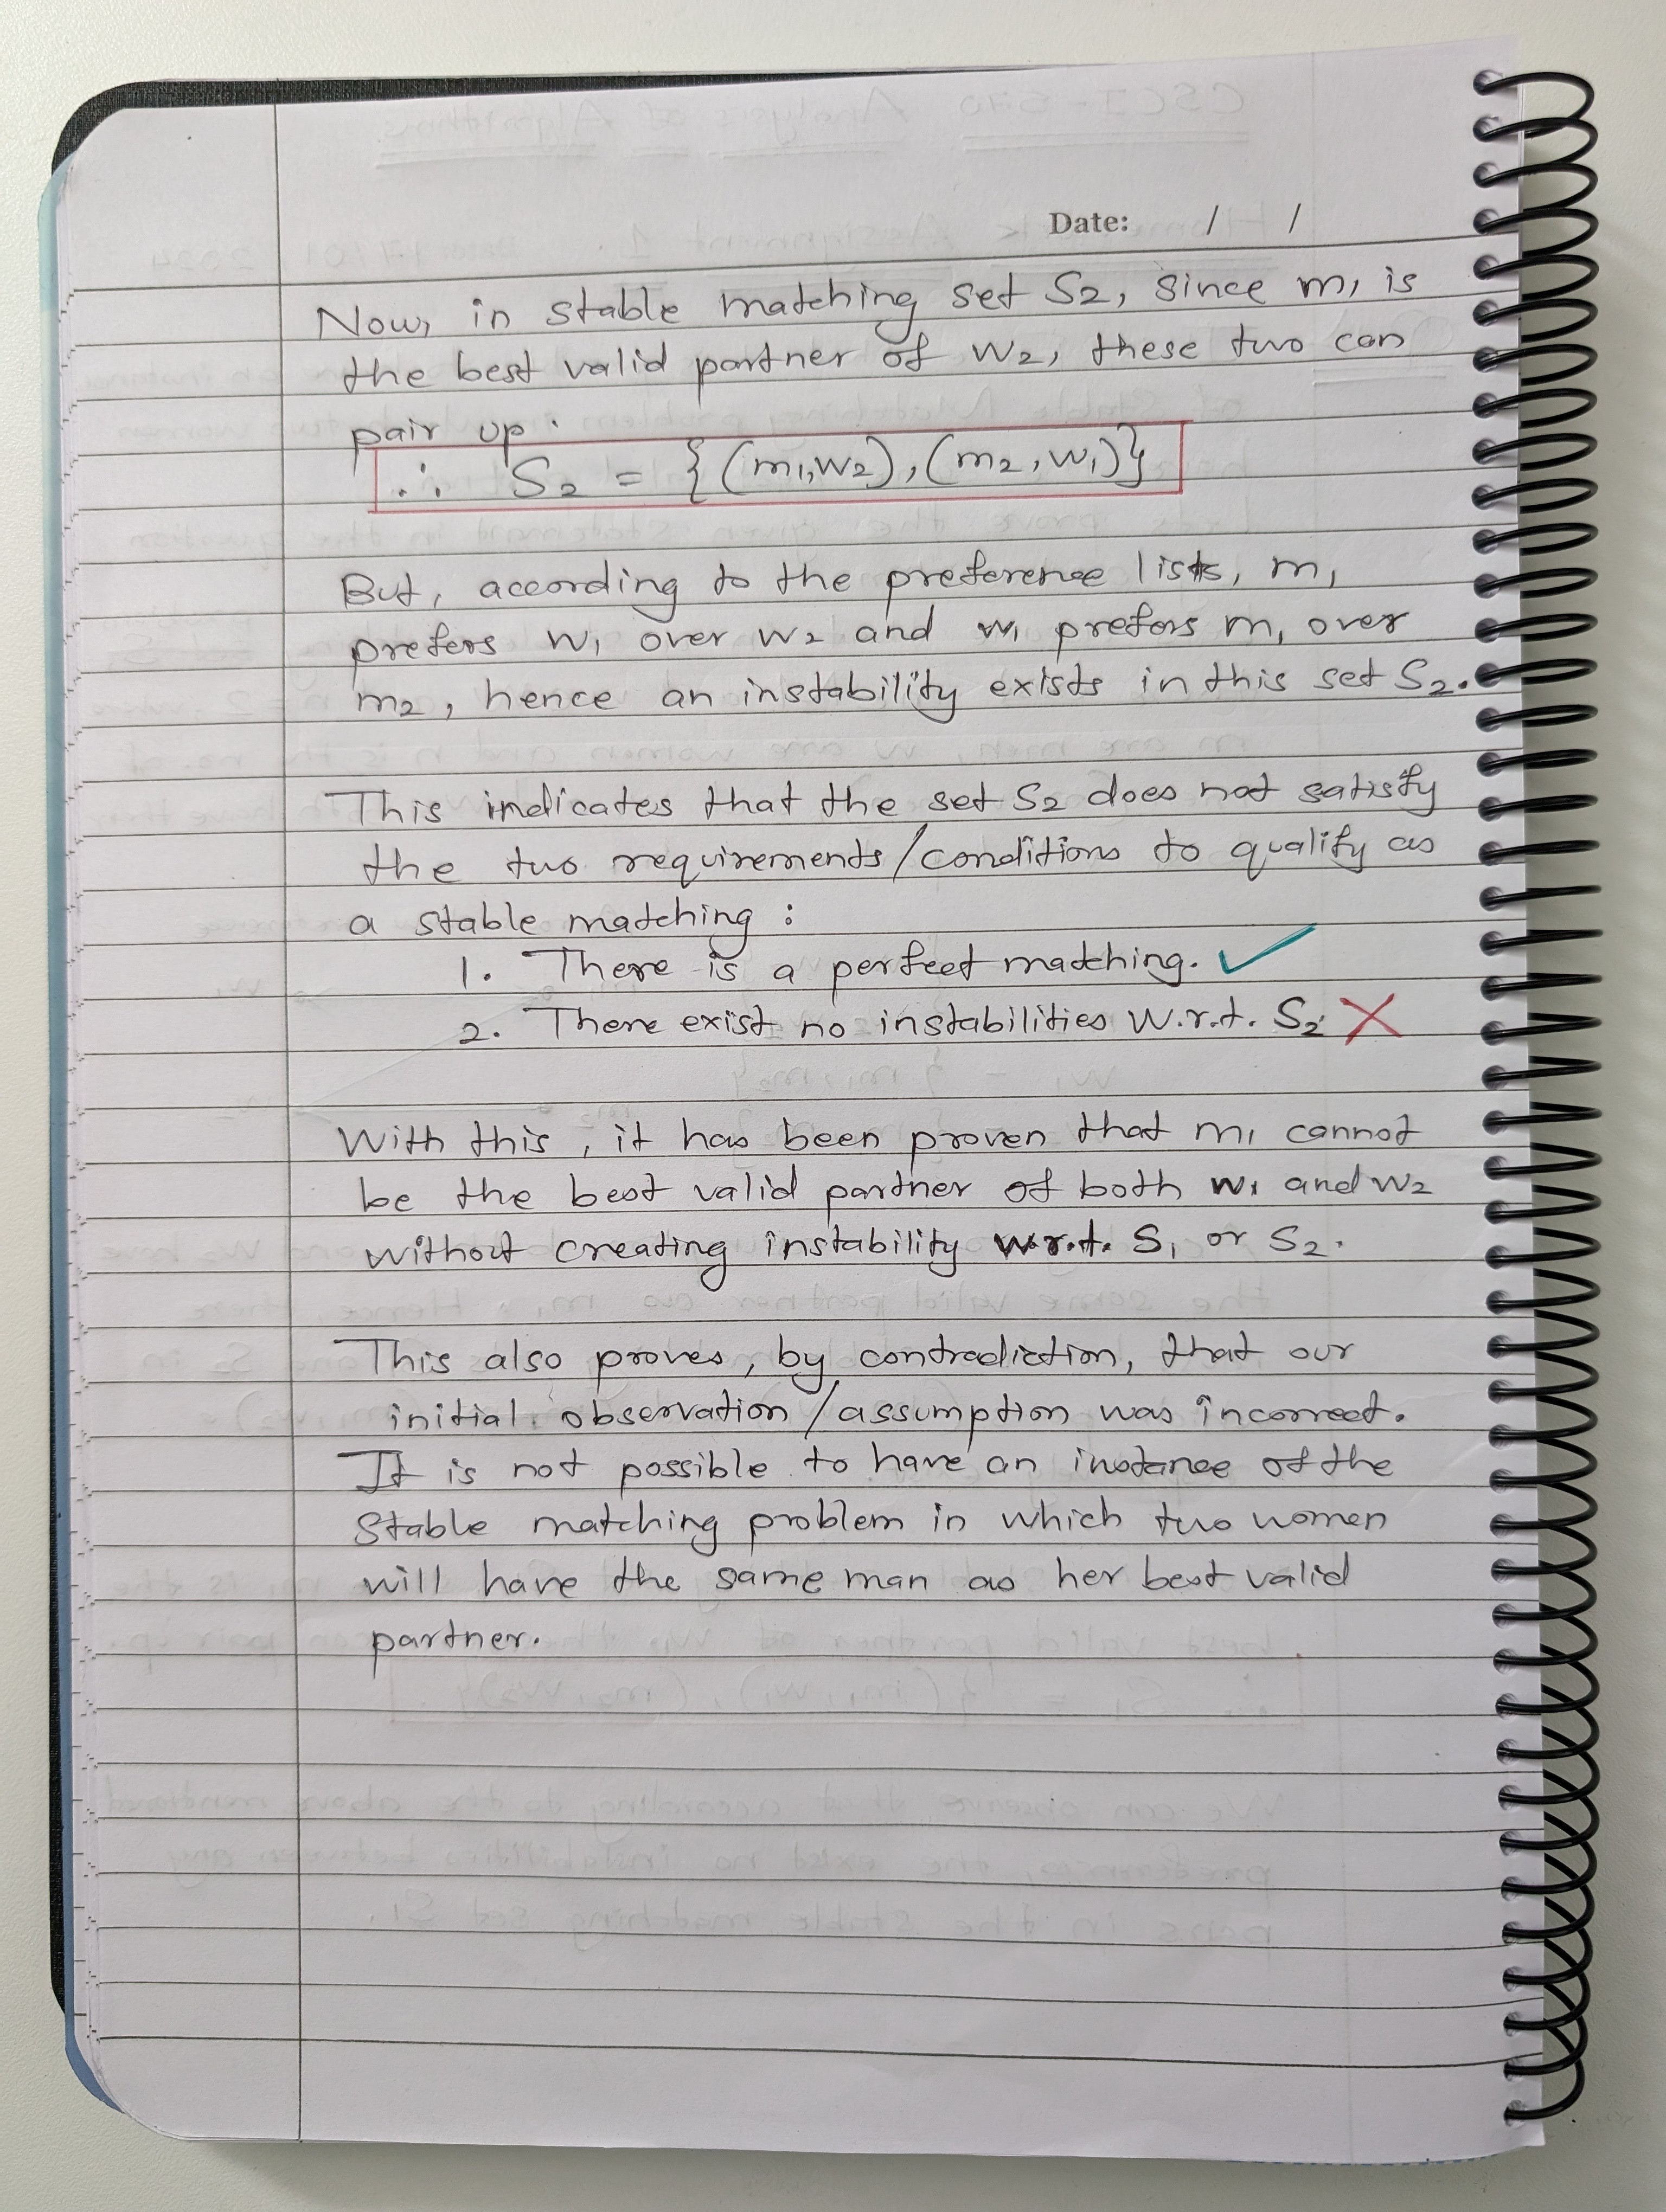 Date: / /
Now, in stable matching set S₂, since m₁ is
the best valid partner of W₂, these two can
pair up.
∴ S₂ = {(m₁,W₂),(m₂,W₁)}
But, according to the preference lists, m₁
prefers W₁ over W₂ and W₁ prefers m₁ over
m₂, hence an instability exists in this set S₂.
This indicates that the set S₂ does not satisfy
the two requirements/conditions to qualify as
a stable matching:
1. There is a perfect matching. ✓
2. There exist no instabilities W.r.t. S₂ ✗
With this, it has been proven that m₁ cannot
be the best valid partner of both W₁ and W₂
without creating instability w.r.t. S₁ or S₂.
This also proves, by contradiction, that our
initial observation/assumption was incorrect.
It is not possible to have an instance of the
Stable matching problem in which two women
will have the same man as her best valid
partner.